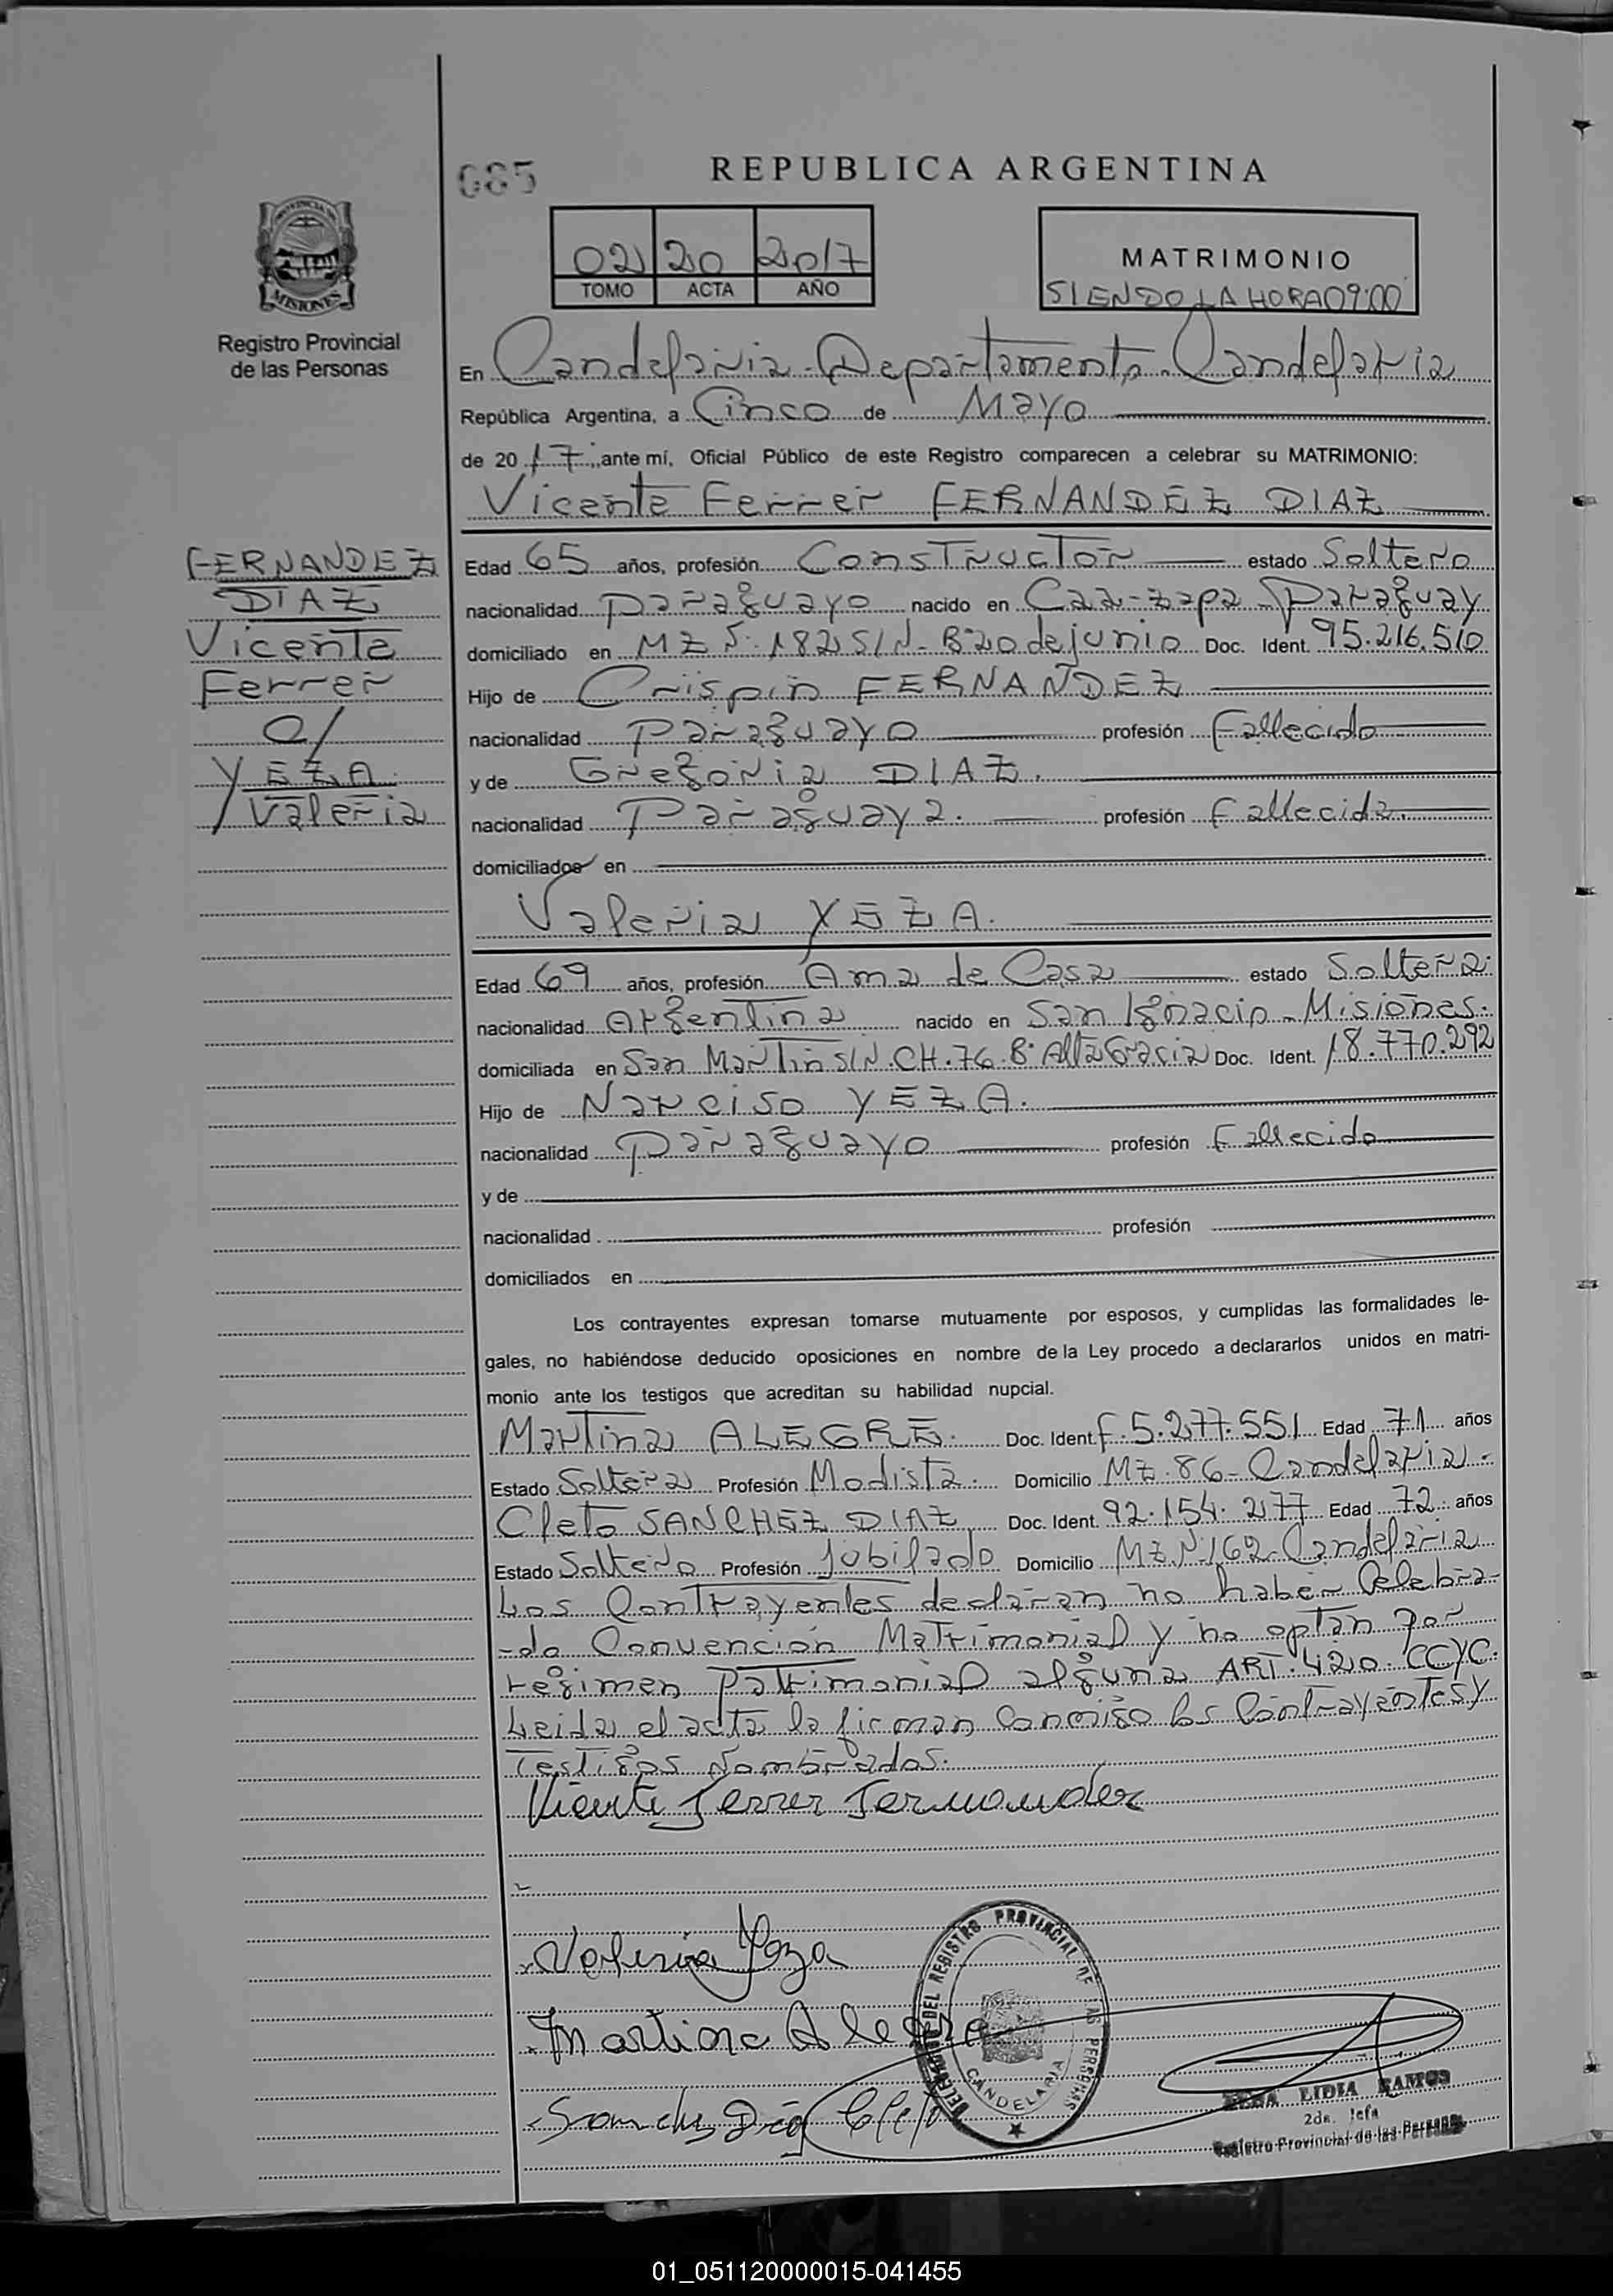 085
REPUBLICA ARGENTINA
PROVINCIA DE
MISIONES
Registro Provincial
de las Personas
02 20 2017
TOMO ACTA AÑO
MATRIMONIO
SIENDO LA HORA 09:00
En Candelaria - Departamento - Candelaria
República Argentina, a Cinco de Mayo
de 20 17 ante mí, Oficial Público de este Registro comparecen a celebrar su MATRIMONIO:
Vicente Ferrer FERNANDEZ DIAZ
FERNANDEZ
DIAZ
Vicente
Ferrer
C/
YEZA
Valeria
Edad 65 años, profesión Constructor estado Soltero
nacionalidad paraguayo nacido en Caa-zapa - Paraguay
domiciliado en MZ N: 182 S/N - B: 20 de junio Doc. Ident. 95.216.510
Hijo de Crispin FERNANDEZ
nacionalidad paraguayo profesión Fallecido
y de Gregoria DIAZ.
nacionalidad Paraguaya. profesión Fallecida.
domiciliados en
Valeria YEZA.
Edad 69 años, profesión Ama de Casa estado Soltera.
nacionalidad Argentina nacido en San Ignacio - Misiones.
domiciliada en San Martin S/N. CH. 76. B: Alta Gracia Doc. Ident. 18.770.292
Hijo de Narciso YEZA.
nacionalidad paraguayo profesión Fallecido
y de
nacionalidad profesión
domiciliados en
Los contrayentes expresan tomarse mutuamente por esposos, y cumplidas las formalidades le-
gales, no habiéndose deducido oposiciones en nombre de la Ley procedo a declararlos unidos en matri-
monio ante los testigos que acreditan su habilidad nupcial.
Martina ALEGRE. Doc. Ident. F. 5.277.551 Edad 71 años
Estado Soltera Profesión Modista. Domicilio MZ. 86 - Candelaria -
Cleto SANCHEZ DIAZ Doc. Ident. 92.154.277 Edad 72 años
Estado Soltero Profesión Jubilado Domicilio MZ. N: 162 - Candelaria
Los Contrayentes declaran no haber Celebra-
-do Convención Matrimonial y no optan por
regimen Patrimonial alguna ART. 420. CCYC.
Leida el acta la firman Conmigo los Contrayentes y
Testigos Nombrados.
Vicente Ferrer Fernandez
Valeria Yeza
Martina Alegre
Sanchez Diaz Cleto
DELEGACION DEL REGISTRO PROVINCIAL DE LAS PERSONAS
CANDELARIA
LIDIA RAMOS
2da. Jefa
Registro Provincial de las Personas
01_051120000015-041455